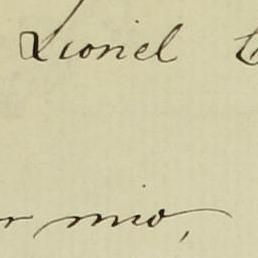 Lionel
mio,